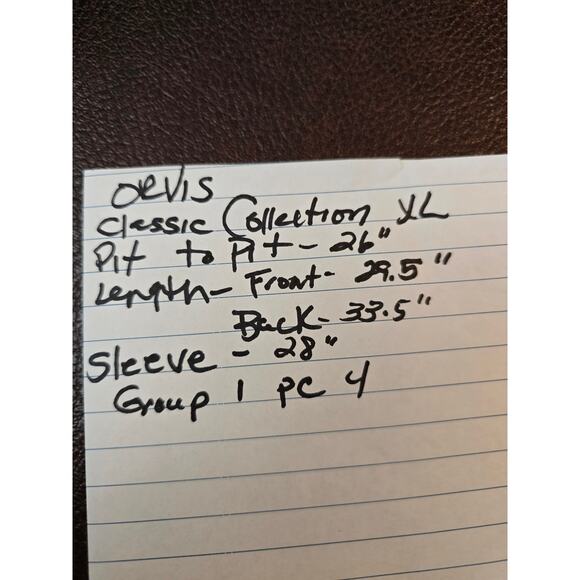 ORVIS
Classic Collection XL
Pit to Pit - 26"
Length - Front - 29.5"
Back - 33.5"
Sleeve - 28"
Group 1 pc 4